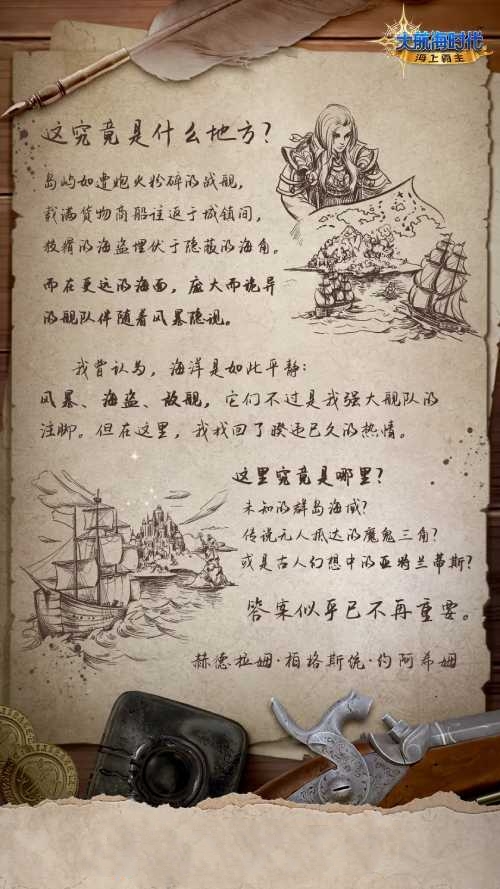 大航海时代
海上霸主
这究竟是什么地方？
岛屿如遭炮火粉碎的战舰，
载满货物商船往返于城镇间，
狡猾的海盗埋伏于隐蔽的海角。
而在更远的海面，庞大而诡异
的舰队伴随着风暴隐现。
我曾认为，海洋是如此平静：
风暴、海盗、敌舰，它们不过是我强大舰队的
注脚。但在这里，我找回了暌违已久的热情。
这里究竟是哪里？
未知的群岛海域？
传说无人抵达的魔鬼三角？
或是古人幻想中的亚特兰蒂斯？
答案似乎已不再重要。
赫德拉姆·柏格斯统·约阿希姆